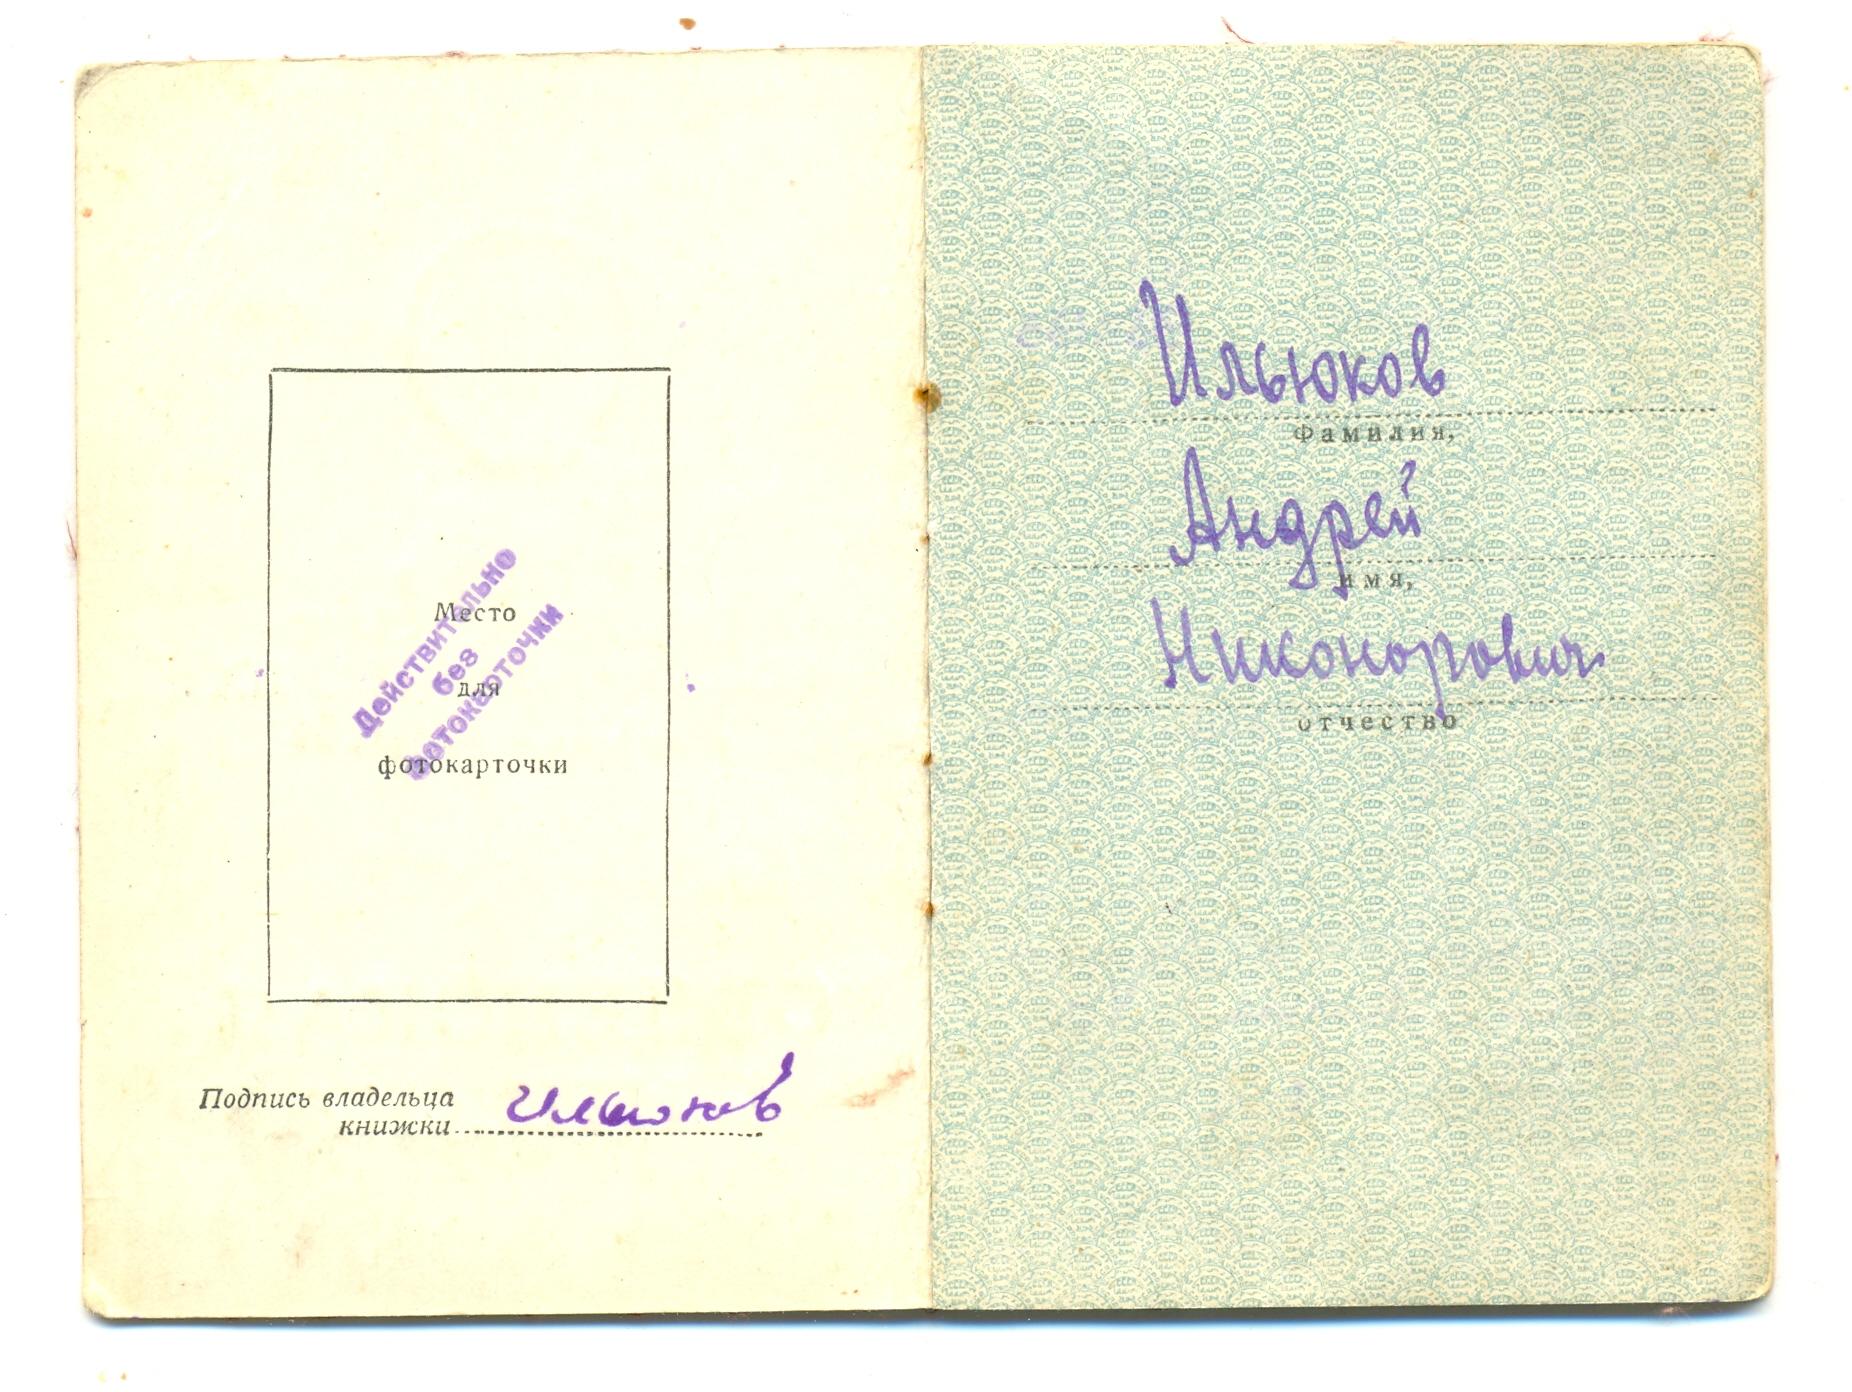 Место
для
фотокарточки
Действительно
без
фотокарточки
Подпись владельца
книжки
Ильюков
Ильюков
Фамилия,
Андрей
имя,
Никонорович
отчество